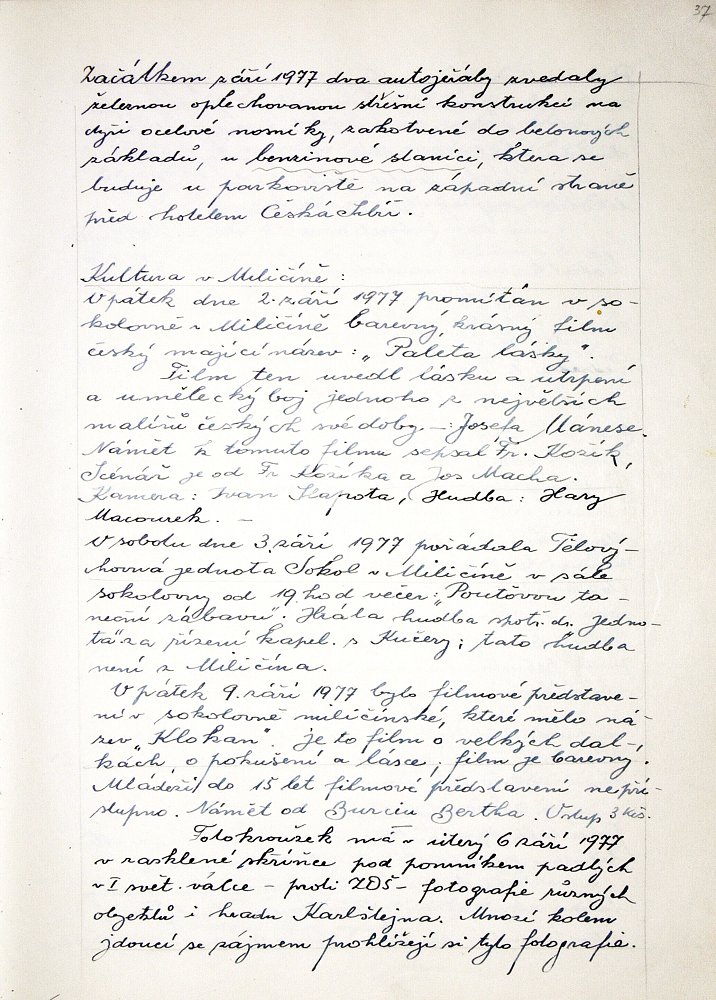 37
Začátkem září 1977 dva autojeřáby zvedaly
železnou oplechovanou střešní konstrukci na
čtyři ocelové nosníky, zakotvené do betonových
základů, u benzinové stanici, která se
buduje u parkoviště na západní straně
před hotelem Česká Sibiř.
Kultura v Miličíně:
V pátek dne 2. září 1977 promítán v so-
kolovně v Miličíně barevný, krásný film
český mající název: „Paleta lásky".
Film ten uvedl lásku a utrpení
a umělecký boj jednoho z největších
malířů českých své doby -: Josefa Mánese.
Námět k tomuto filmu sepsal Fr. Kožík,
Scénář je od Fr Kožíka a Jos Macha.
Kamera: Ivan Šlapota, Hudba: Hary
Macourek. -
V sobotu dne 3. září 1977 pořádala Tělový-
chovná jednota Sokol v Miličíně v sále
sokolovny od 19 hod večer: „Pouťovou ta-
neční zábavu". Hrála hudba spotř. dr. Jedno-
ta" za řízení kapel. s Kučery; tato hudba
není z Miličína.
V pátek 9. září 1977 bylo filmové představe-
ní v sokolovně miličínské, které mělo ná-
zev „Klokan". Je to film o velkých dál-
kách, o pokušení a lásce; film je barevný.
Mládeži do 15 let filmové představení nepří-
stupno. Námět od Burciu Bertha. Vstup 3 Kčs.
Fotokroužek má v úterý 6 září 1977
v zasklené skřínce pod pomníkem padlých
v I svět. válce - proti ZDŠ - fotografie různých
objektů i hradu Karlštejna. Mnozí kolem
jdoucí se zájmem prohlížejí si tyto fotografie.